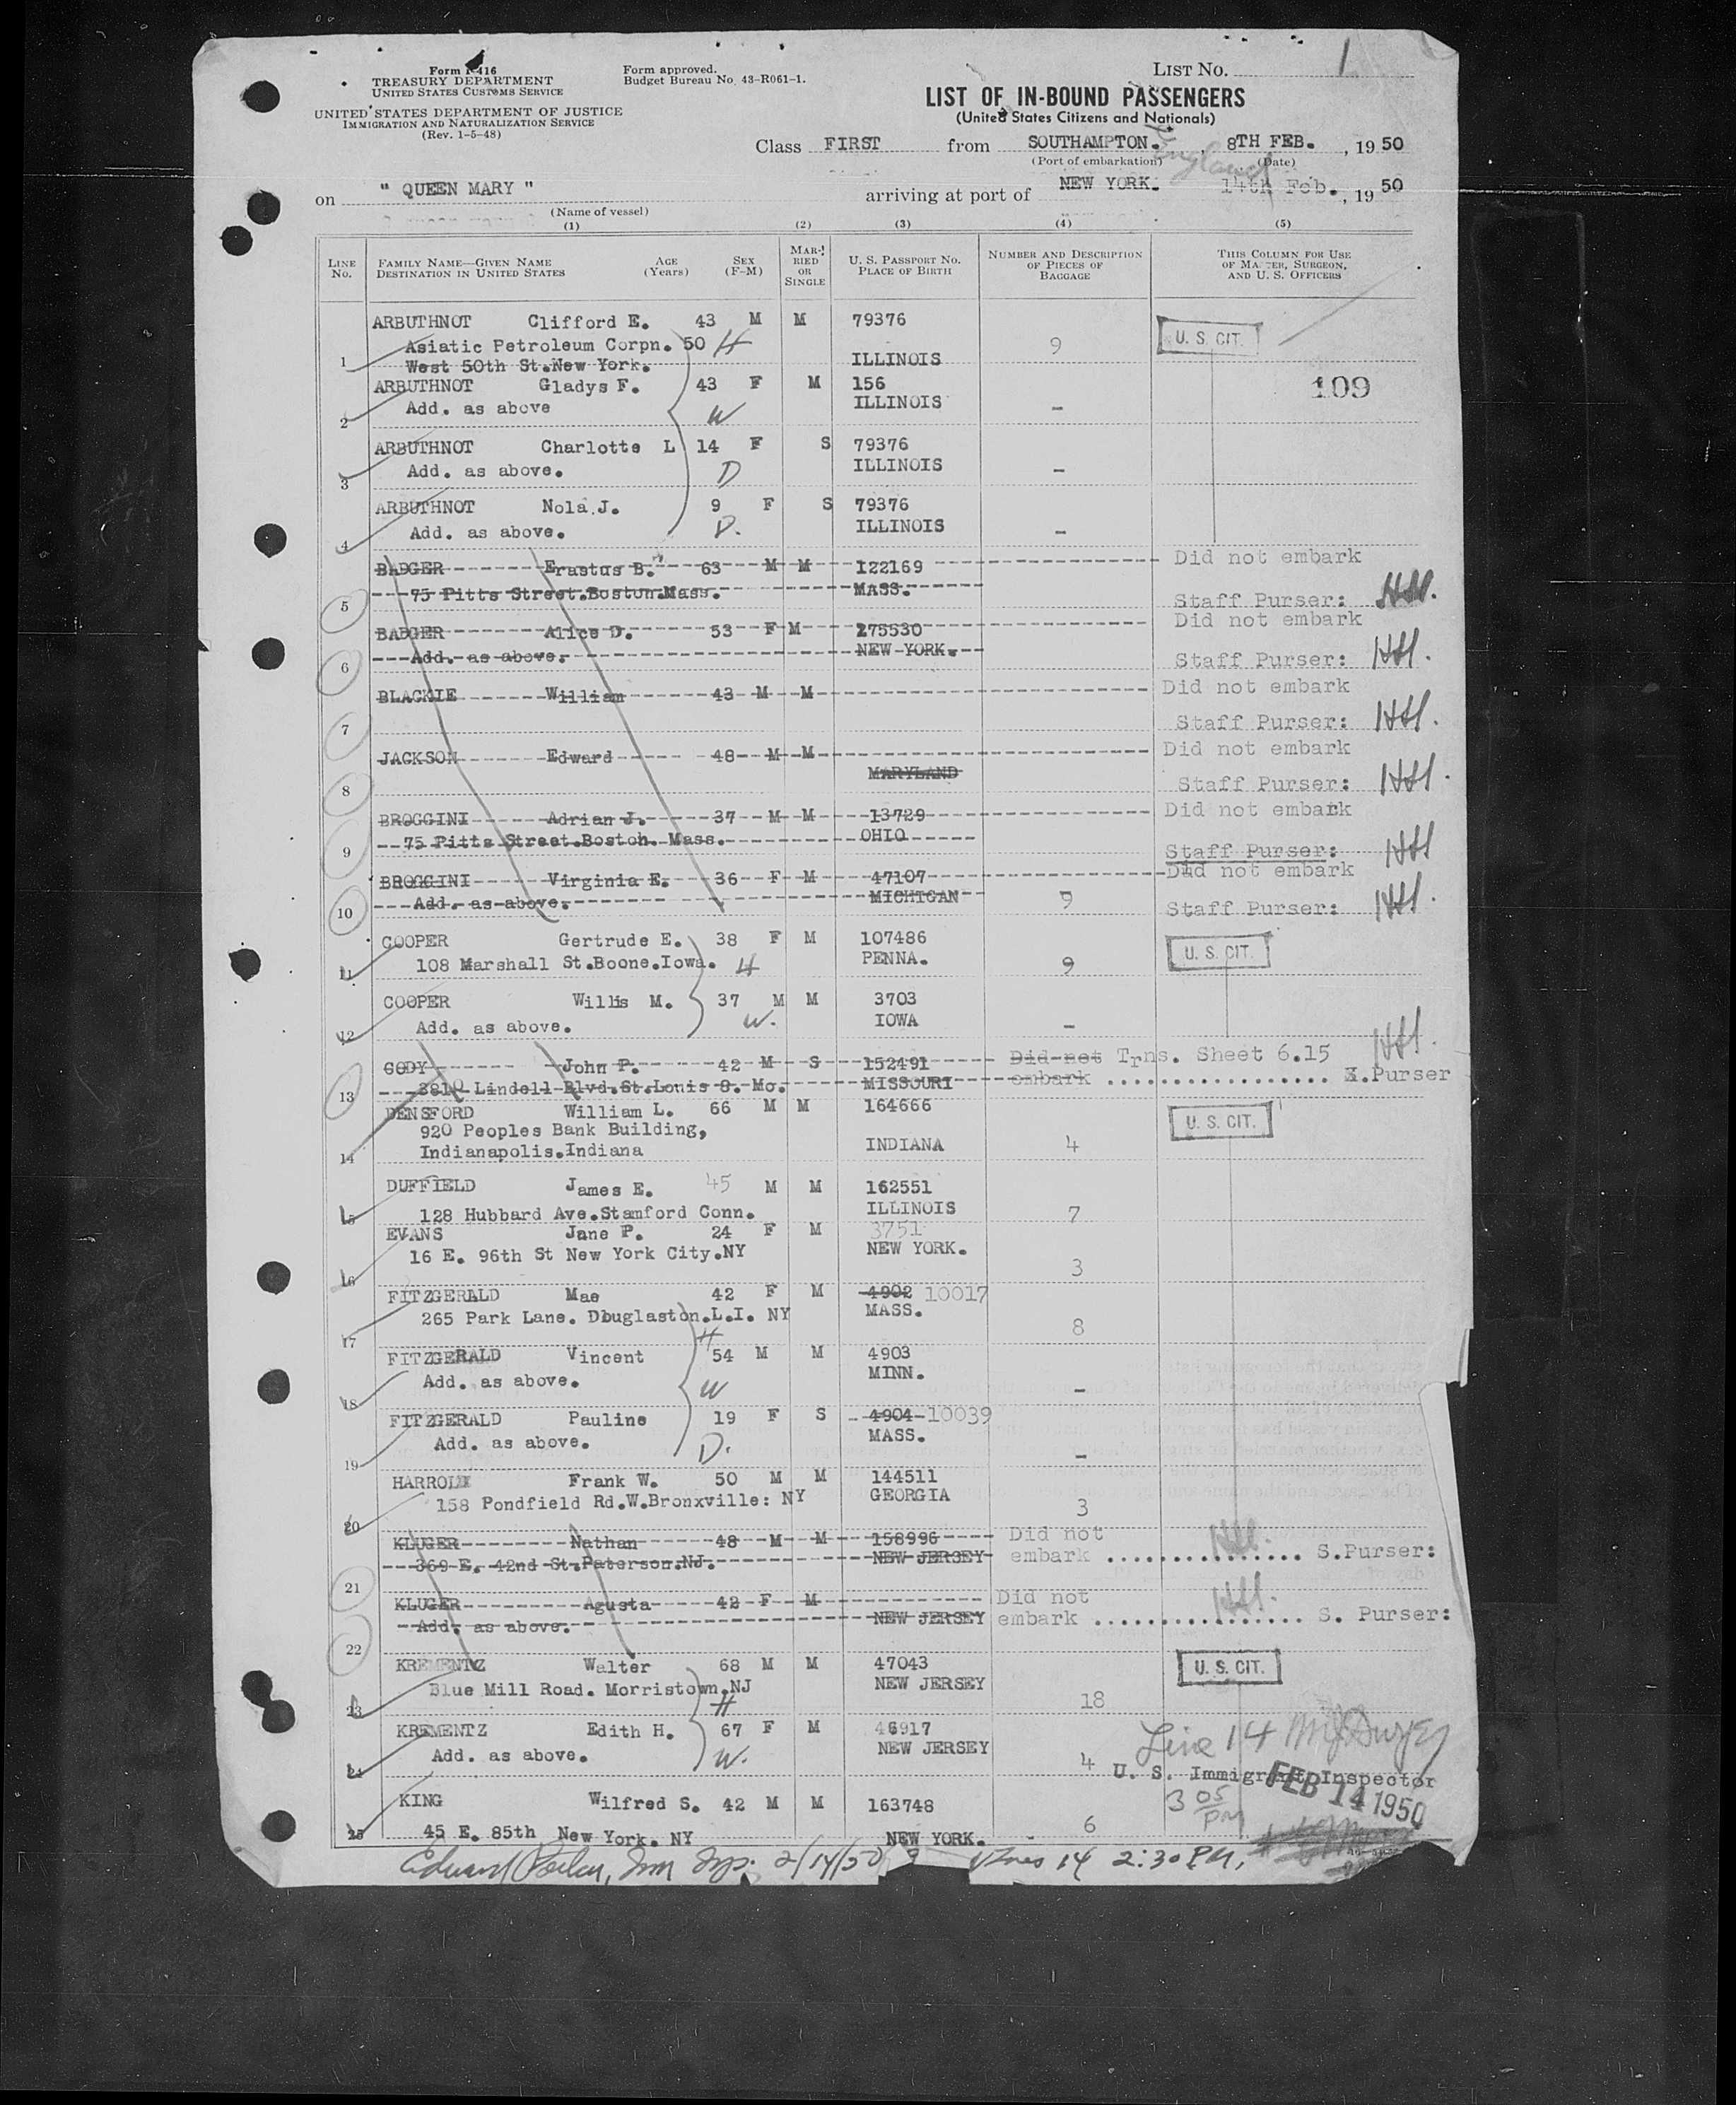 Form I-416
TREASURY DEPARTMENT
UNITED STATES CUSTOMS SERVICE
UNITED STATES DEPARTMENT OF JUSTICE
IMMIGRATION AND NATURALIZATION SERVICE
(Rev. 1-5-48)
Form approved.
Budget Bureau No. 43-R061-1.
LIST NO. 1
LIST OF IN-BOUND PASSENGERS
(United States Citizens and Nationals)
Class FIRST from SOUTHAMPTON. England, 8TH FEB., 19 50
(Port of embarkation) (Date)
on " QUEEN MARY " arriving at port of NEW YORK. 14th Feb., 19 50
(Name of vessel)
(1) (2) (3) (4) (5)
LINE No. FAMILY NAME—GIVEN NAME DESTINATION IN UNITED STATES AGE (Years) SEX (F-M) MARRIED OR SINGLE U. S. PASSPORT NO. PLACE OF BIRTH NUMBER AND DESCRIPTION OF PIECES OF BAGGAGE THIS COLUMN FOR USE OF MASTER, SURGEON, AND U. S. OFFICERS
ARBUTHNOT Clifford E. 43 M M 79376
Asiatic Petroleum Corpn. 50 H 9 U. S. CIT.
1 West 50th St.New York. ILLINOIS
ARBUTHNOT Gladys F. 43 F M 156 109
2 Add. as above W ILLINOIS -
ARBUTHNOT Charlotte L 14 F S 79376
3 Add. as above. D ILLINOIS -
ARBUTHNOT Nola J. 9 F S 79376
4 Add. as above. D. ILLINOIS -
BADGER Erastus B. 63 M M 122169 Did not embark
5 75 Pitts Street.Boston.Mass. MASS. Staff Purser: HH.
BADGER Alice D. 53 F M 275530 Did not embark
6 Add. as above. NEW YORK. Staff Purser: HH.
BLACKIE William 43 M M Did not embark
7 Staff Purser: HH.
JACKSON Edward 48 M M Did not embark
8 MARYLAND Staff Purser: HH.
BROGGINI Adrian J. 37 M M 13729 Did not embark
9 75 Pitts Street.Boston. Mass. OHIO Staff Purser: HH
BROGGINI Virginia E. 36 F M 47107 Did not embark
10 Add. as above. MICHIGAN 9 Staff Purser: HH.
COOPER Gertrude E. 38 F M 107486 U. S. CIT.
11 108 Marshall St.Boone.Iowa. H PENNA. 9
COOPER Willis M. 37 M M 3703
12 Add. as above. W. IOWA -
CODY John P. 42 M S 152491 Did not Trns. Sheet 6.15 HH.
13 3810 Lindell Blvd.St.Louis 8. Mo. MISSOURI embark .................. S.Purser
DENSFORD William L. 66 M M 164666 U. S. CIT.
920 Peoples Bank Building,
14 Indianapolis.Indiana INDIANA 4
DUFFIELD James E. 45 M M 162551
15 128 Hubbard Ave.Stamford Conn. ILLINOIS 7
EVANS Jane P. 24 F M 3751
16 16 E. 96th St New York City.NY NEW YORK. 3
FITZGERALD Mae 42 F M 4902 10017
17 265 Park Lane. Douglaston.L.I. NY H MASS. 8
FITZGERALD Vincent 54 M M 4903
18 Add. as above. W MINN. -
FITZGERALD Pauline 19 F S 4904 10039
19 Add. as above. D. MASS. -
HARROLD Frank W. 50 M M 144511
20 158 Pondfield Rd.W.Bronxville: NY GEORGIA 3
KLUGER Nathan 48 M M 158996 Did not HH.
21 369 E. 42nd St.Paterson.NJ. NEW JERSEY embark ................ S.Purser:
KLUGER Agusta 42 F M Did not HH.
22 Add. as above. NEW JERSEY embark ................. S. Purser:
KREMENTZ Walter 68 M M 47043 U. S. CIT.
23 Blue Mill Road. Morristown.NJ H NEW JERSEY 18
KREMENTZ Edith H. 67 F M 46917 Line 14
24 Add. as above. W. NEW JERSEY 4 U. S. Immigrant Inspector
FEB 14 1950
KING Wilfred S. 42 M M 163748 3 05 PM
25 45 E. 85th New York. NY NEW YORK. 6
Edward 2/14/50 14 2:30 P.M.